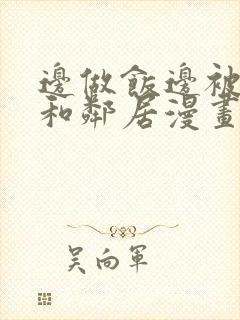 邊做飯邊被
和鄰居漫畫
吳向軍